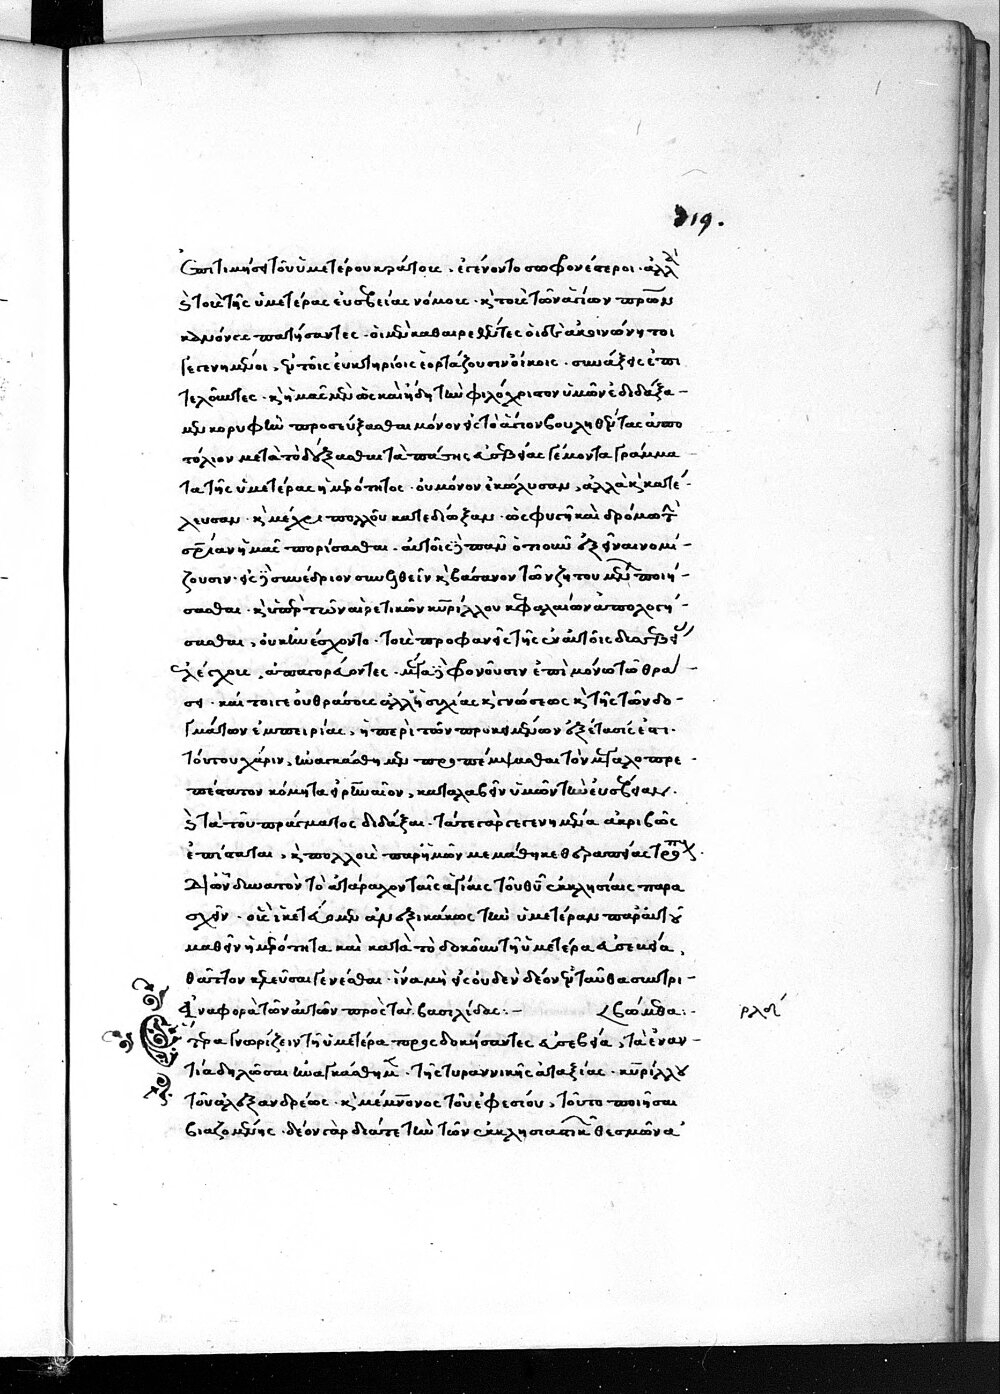 219.
ἐπιτιμήσει τοῦ ὑμετέρου κράτους, ἐγένοντο σωφρονέστεροι. ἀλλὰ
καὶ τοῖς τῆς ὑμετέρας εὐσεβείας νόμοις. καὶ τοῖς τῶν ἁγίων πρῶν
κανόνας πατήσαντες. οἱ μὲν καθαιρεθέντες οἱ δὲ ἀκοινώνητοι
γεγενημένοι, ἐν τοῖς εὐκτηρίοις ἑορτάζουσιν οἴκοις. συνάξεις ἐπι
τελοῦντες. καὶ ἡμᾶς μὲν ὡς καὶ ἤδη τὴν φιλόχριστον ὑμῶν ἐδιδάξα-
μεν κορυφὴν προσεύξασθαι μόνον εἰς τὸ ἅγιον βουληθέντας ἀπο
τόλιον μετὰ τὸ δέξασθαι τὰ πάσης εὐσεβείας γέμοντα γράμμα
τα τῆς ὑμετέρας ἡμερότητος. οὐ μόνον ἐκώλυσαν, ἀλλὰ καὶ κατέ-
λευσαν. καὶ μέχρι πολλοῦ κατεδίωξαν. ὡς φυγῇ καὶ δρόμῳ τὴν
σρίαν ἡμᾶς πορίσασθαι. αὐτοῖς γὰρ πᾶν ὁτιοῦν ἐξεῖναι νομί-
ζουσιν. εἰς γὰρ συνέδριον συνελθεῖν καὶ βάσανον τῶν ζητουμένων ποιή-
σασθαι. καὶ ὑπὲρ τῶν αἱρετικῶν κυρίλλου κεφαλαίων ἀπολογή-
σασθαι, οὐκ ἠνέσχοντο. τοῖς προφανεῖς τῆς ἐν αὐτοῖς δυσσεβείας
ἐλέγχοις, ἀπαγορεύοντες. μετὰ γὰρ φρονοῦσιν ἐπὶ μόνῳ τῷ θρά-
σει. καίτοι γε οὐ θράσους ἀλλ' ἡσυχίας καὶ γνώσεως καὶ τῆς τῶν δο-
γμάτων ἐμπειρίας, ἡ περὶ τῶν προκειμένων ἐξέτασίς ἐστι.
τούτου χάριν, ἠναγκάσθημεν προπέμψασθαι τὸν μεγαλοπρε-
πέστατον κόμητα εἰρηναῖον, καταλαβεῖν ὑμῶν τὴν εὐσέβειαν.
καὶ τὰ τοῦ πράγματος διδάξαι. τά τε γὰρ γεγενημένα ἀκριβῶς
ἐπίσταται, καὶ πολλοὺς παρ' ἡμῶν μεμάθηκε θεραπείας τρόπους.
δι' ὧν δυνατὸν τὸ ἀτάραχον ταῖς ἁγίαις τοῦ θῦ ἐκκλησίαις παρα
σχεῖν. οἷς ἱκετεύομεν ἀνεξικάκως τὴν ὑμετέραν παρ' αὐτοῦ
μαθεῖν ἡμερότητα καὶ κατὰ τὸ δοκοῦν τῇ ὑμετέρᾳ εὐσεβείᾳ,
θᾶττον κελεῦσαι γενέσθαι. ἵνα μὴ εἰς οὐδὲν δέον ἐνταῦθα συντρι-
Ἀναφορὰ τῶν αὐτῶν πρὸς τὰς βασιλίδας:- βώμεθα:-
ρλθʹ
Ἕτερα γνωρίζειν τῇ ὑμετέρᾳ προσδοκήσαντες εὐσεβείᾳ, τὰ ἐναν-
τία δηλῶσαι ἠναγκάσθημεν. τῆς τυραννικῆς ἀταξίας. κυρίλλου
τοῦ ἀλεξανδρέως. καὶ μέμνονος τοῦ ἐφεσίου, τοῦτο ποιῆσαι
βιαζομένης. δέον γὰρ διά τε τὴν τῶν ἐκκλησιαστικῶν θεσμῶν ἀ